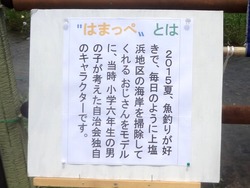 "はまっぺ" とは
2015夏、魚釣りが好
きで、毎日のように上塩
浜地区の海岸を掃除して
くれる おじさんをモデル
に、当時 小学六年生の男
の子が考えた自治会独自
のキャラクターです。